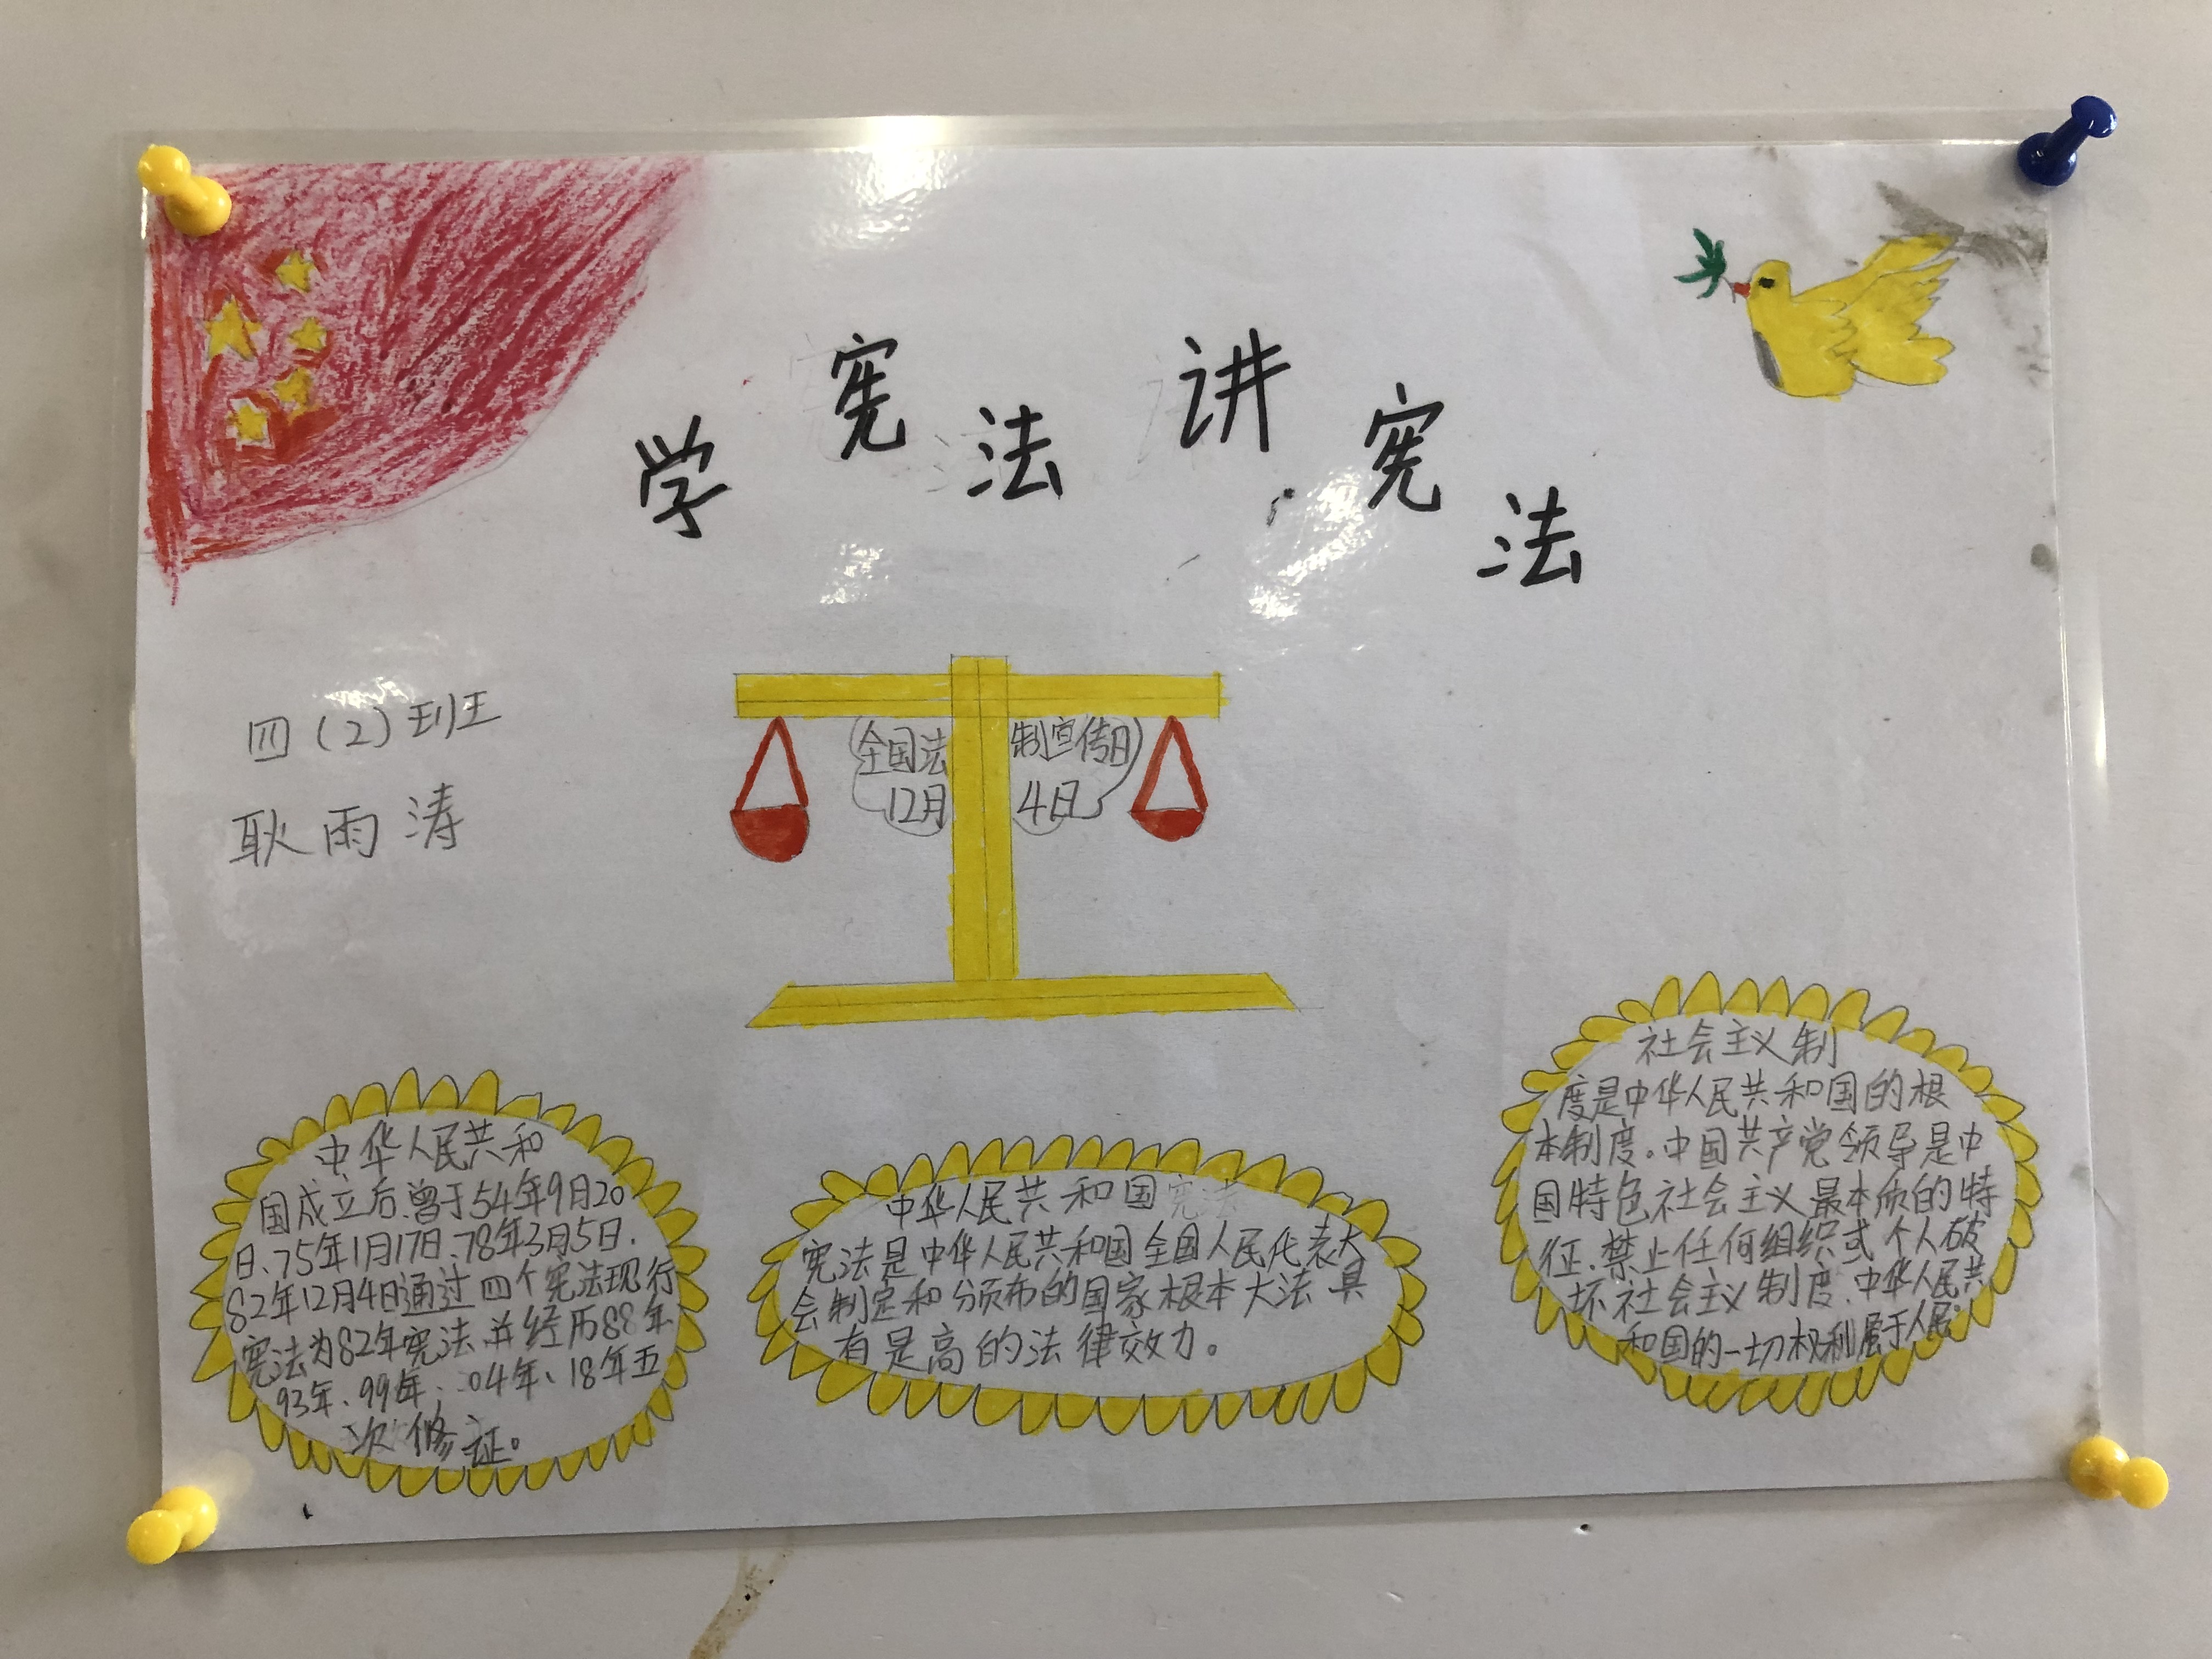 学宪法讲宪法
四(2)班
耿雨涛
全国法制宣传日
12月4日
中华人民共和
国成立后、曾于54年9月20
日、75年1月17日、78年3月5日、
82年12月4日通过四个宪法现行
宪法为82年宪法、并经历88年
93年、99年、04年、18年五
次修证。
中华人民共和国宪法
宪法是中华人民共和国全国人民代表大
会制定和颁布的国家根本大法具
有是高的法律效力。
社会主义制
度是中华人民共和国的根
本制度。中国共产党领导是中
国特色社会主义最本质的特
征、禁止任何组织或个人破
坏社会主义制度、中华人民共
和国的一切权利属于人民。